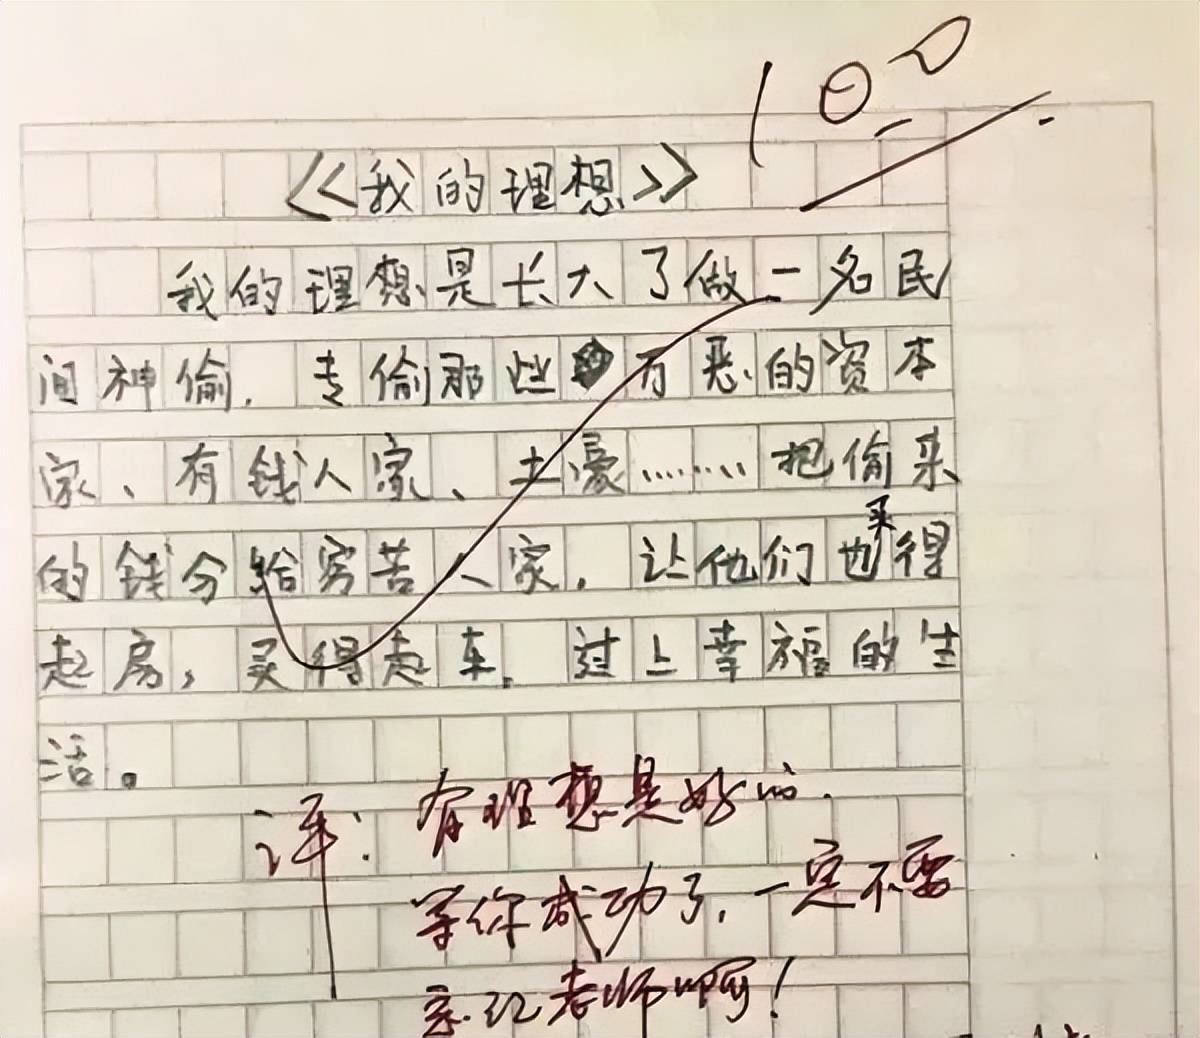 100
《我的理想》
我的理想是长大了做一名民
间神偷，专偷那些万恶的资本
家、有钱人家、土豪……把偷来
的钱分给穷苦人家，让他们也买得
起房，买得起车，过上幸福的生
活。
评：有理想是好的．
等你成功了，一定不要
忘记老师啊！